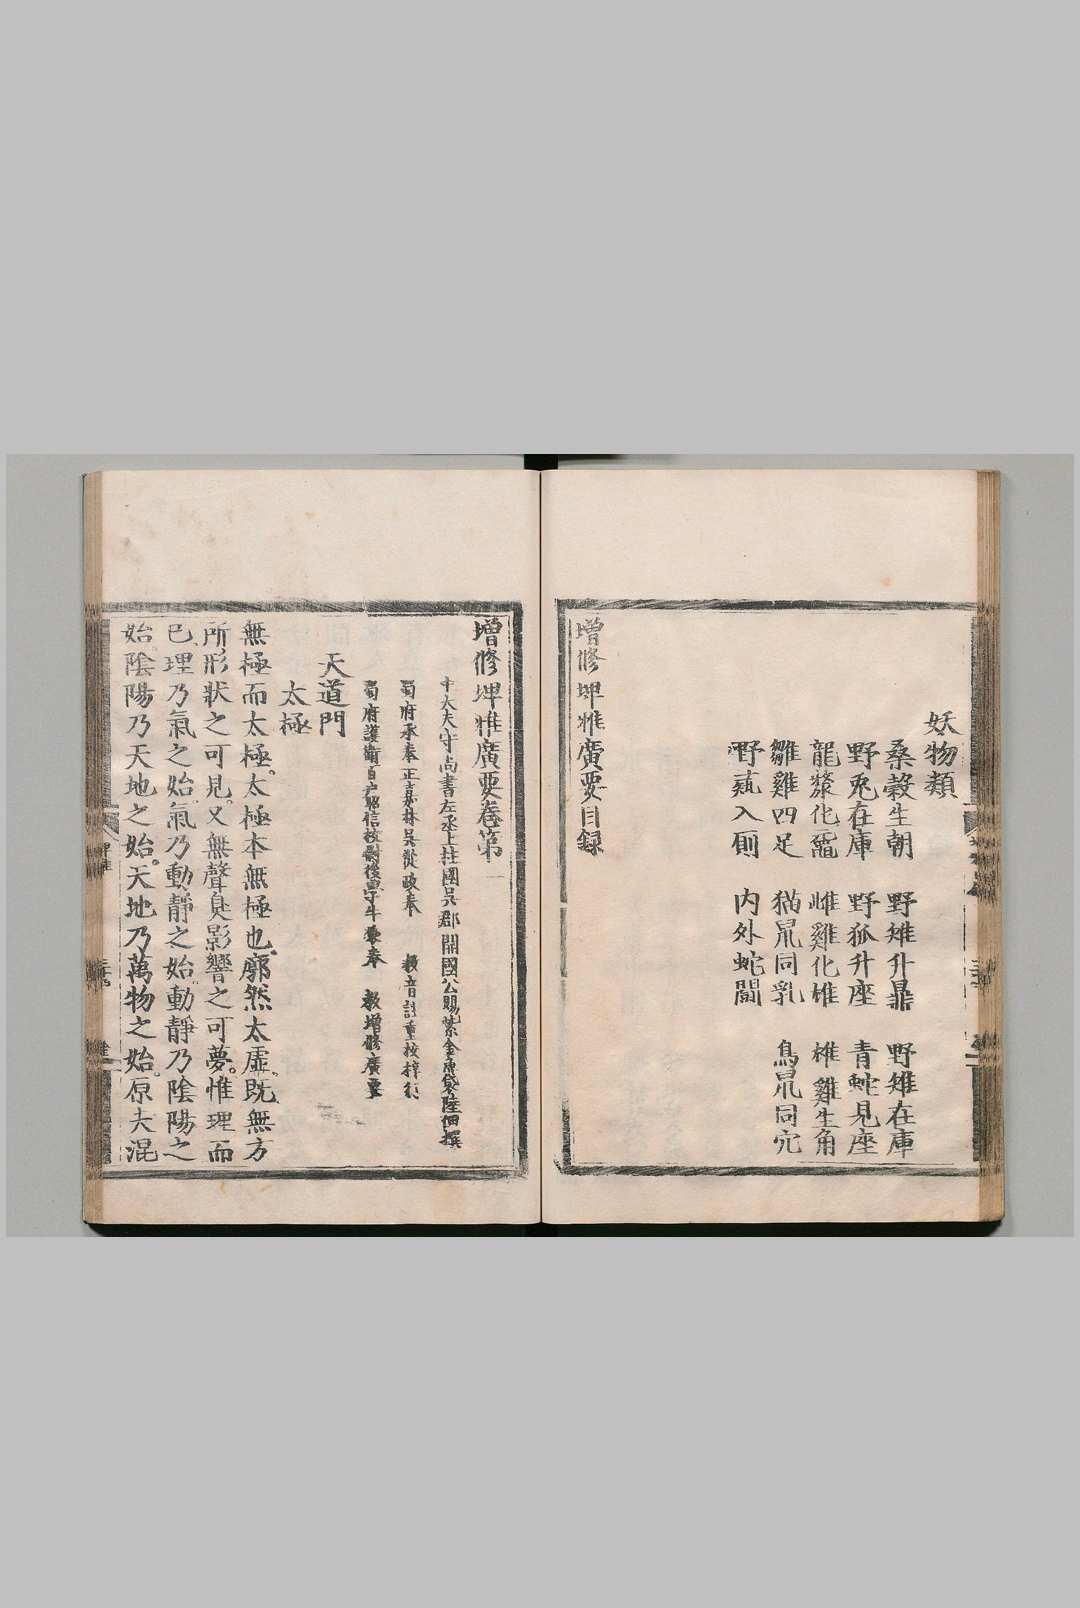 妖物類
桑榖生朝 野雉升鼎 野雉在庫
野兎在庫 野狐升座 青蛇見座
龍漦化黿 雌雞化雄 雄雞生角
雛雞四足 猫鼠同乳 鳥鼠同穴
野彘入厠 內外蛇鬪
增修埤雅廣要目録
增修埤雅廣要卷第一
中大夫守尚書左丞上柱國吳郡開國公賜紫金魚袋陸佃撰
蜀府承奉正嘉林吳從政奉 教音註重校梓行
蜀府護衛百户昭信校尉後學牛衷奉 教增修廣要
天道門
太極
無極而太極太極本無極也廓然太虛旣無方
所形狀之可見又無聲臭影響之可夢惟理而
已理乃氣之始氣乃動靜之始動靜乃陰陽之
始陰陽乃天地之始天地乃萬物之始原夫混